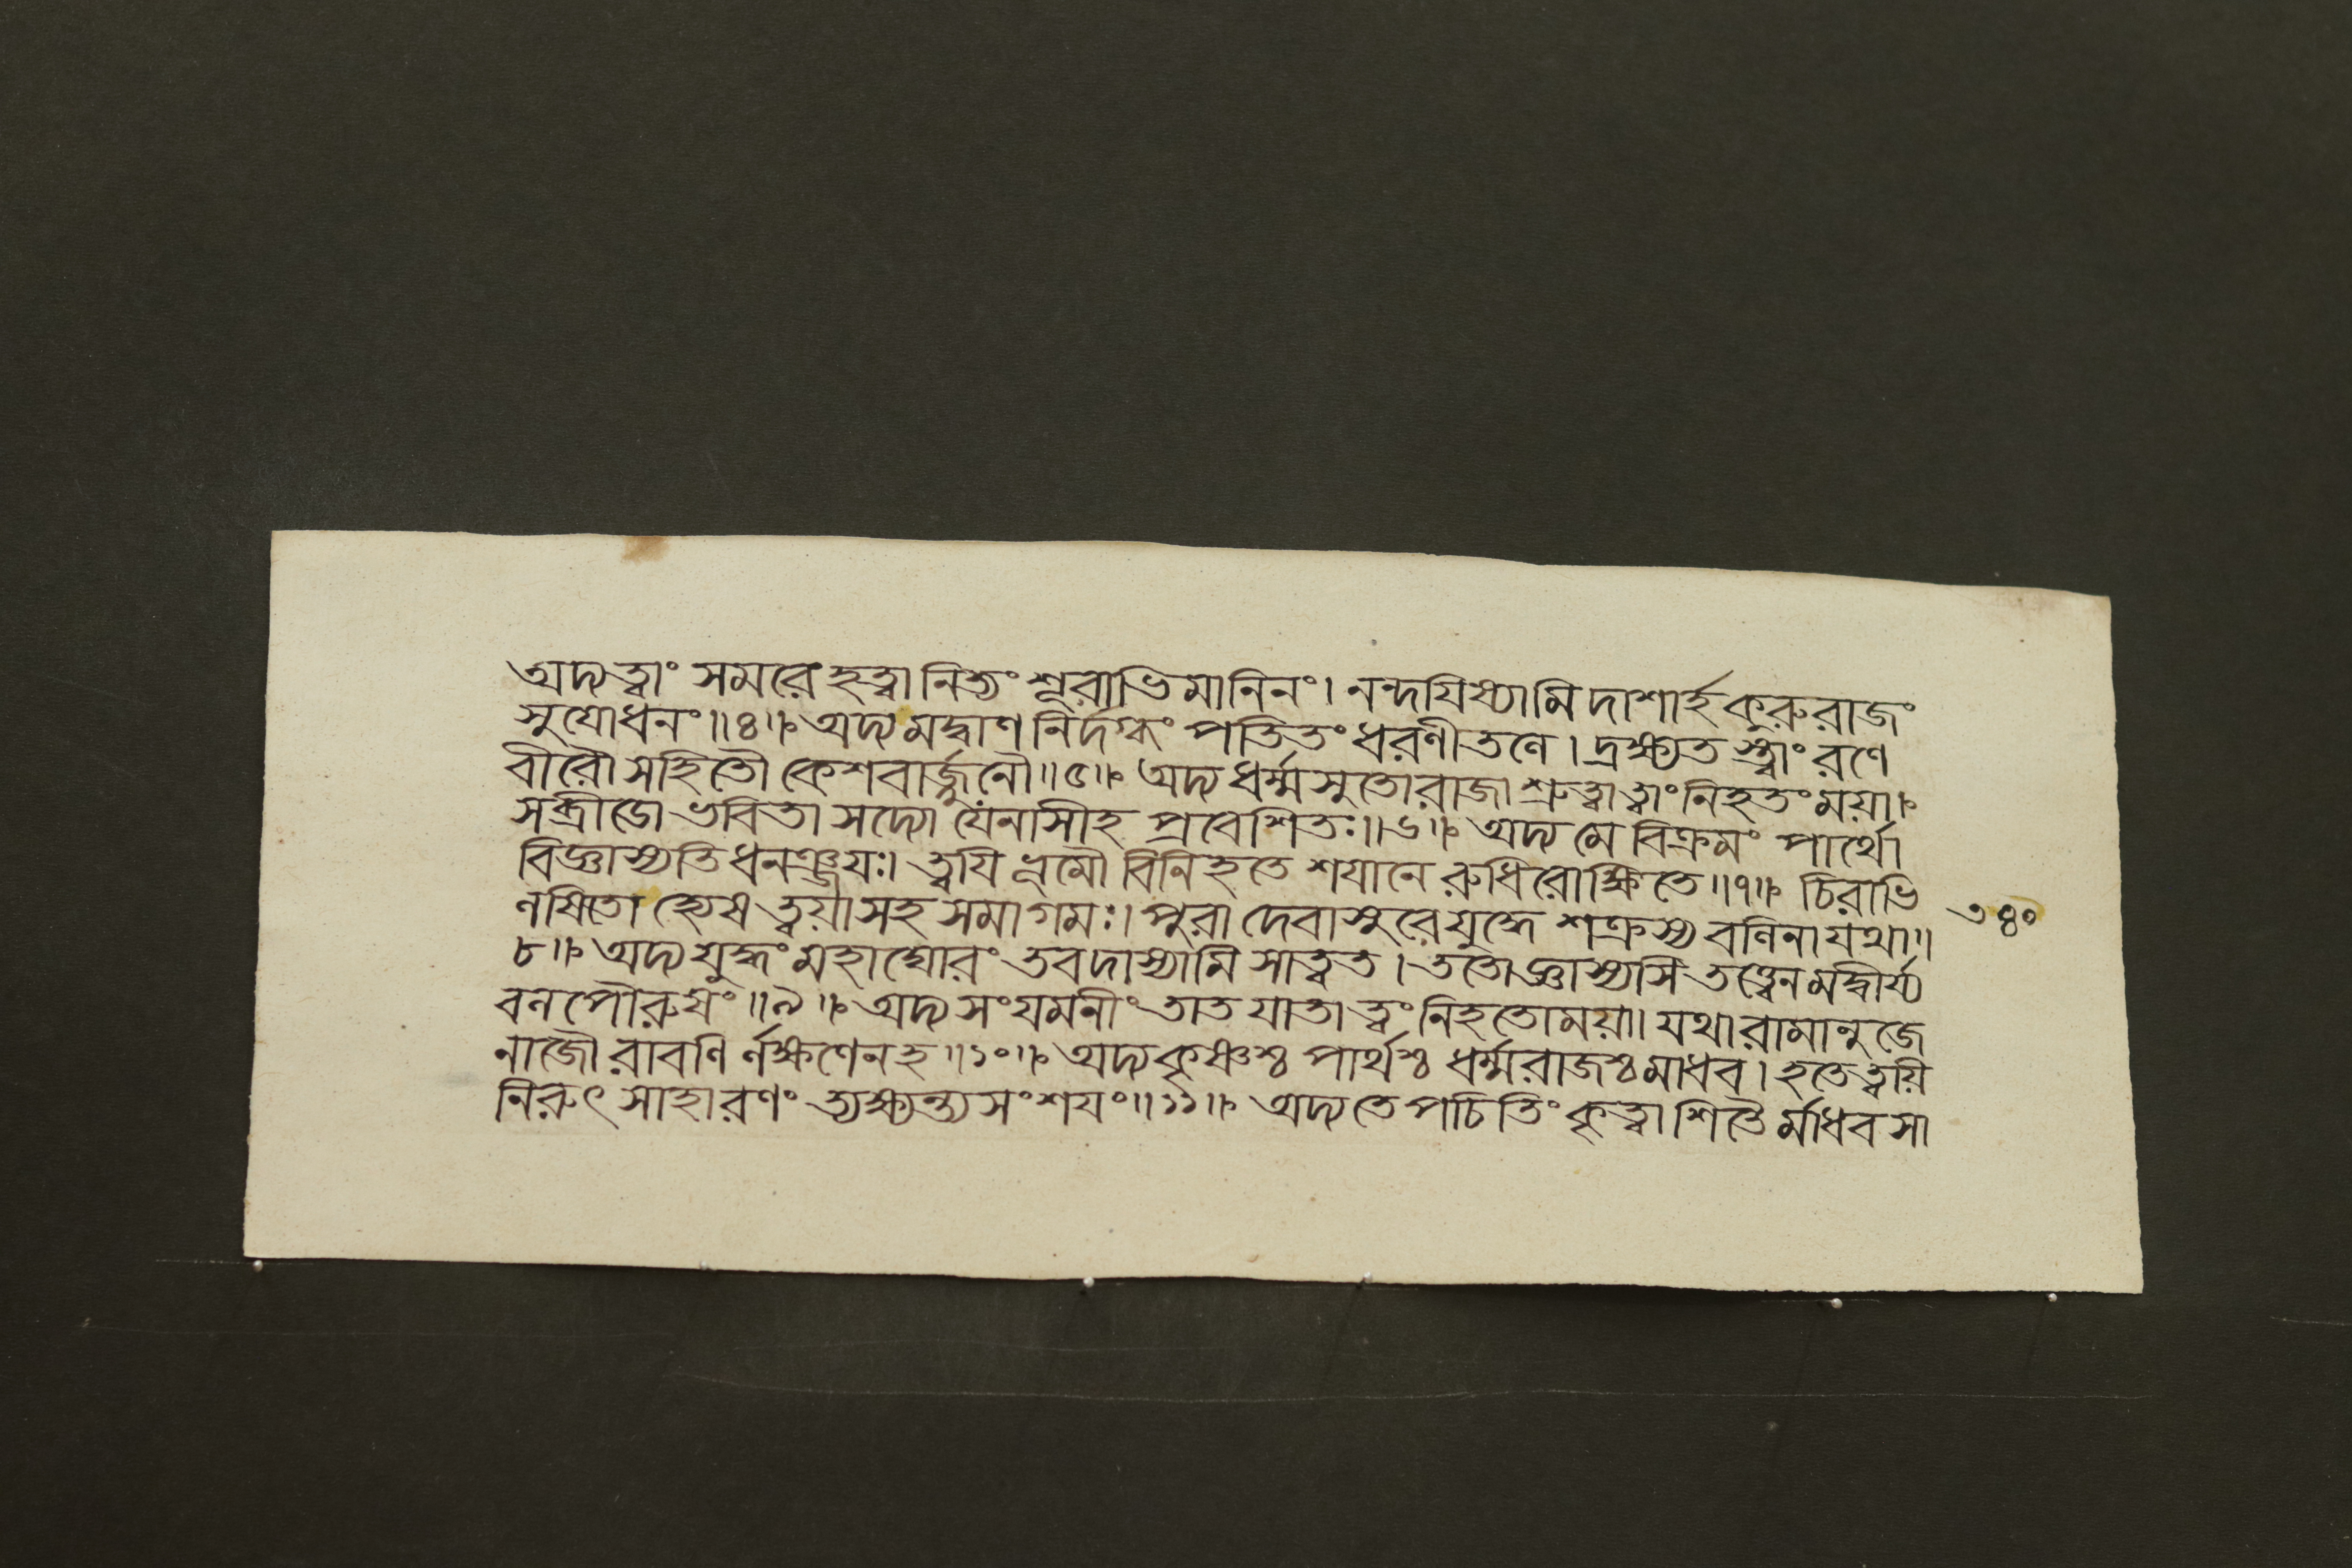 অদ্য ত্বাং সমরে হত্বা নিত্যং শূরাভিমানিনং। নন্দযিষ্যামি দাশার্হ কুরুরাজং
সুযোধনং॥৪॥ অদ্য মদ্বাণনির্দগ্ধং পতিতং ধরণীতলে। দ্রক্ষ্যতস্ত্বাং রণে
বীরৌ সহিতৌ কেশবার্জ্জুনৌ॥৫॥ অদ্য ধর্ম্মসুতো রাজা শ্রুত্বা ত্বাং নিহতং ময়া।
সব্রীডো ভবিতা সদ্যো যেনাসীহ প্রবেশিতঃ॥৬॥ অদ্য মে বিক্রমং পার্থো
বিজ্ঞাস্যতি ধনঞ্জযঃ। ত্বযি ভূমৌ বিনিহতে শযানে রুধিরোক্ষিতে॥৭॥ চিরাভি
লষিতো হ্যেষ ত্বয়া সহ সমাগমঃ। পুরা দেবাসুরে যুদ্ধে শক্রস্য বলিনা যথা॥
৮॥ অদ্য যুদ্ধং মহাঘোরং তব দাস্যামি সাত্বত। ততো জ্ঞাস্যসি তত্ত্বেন মদ্বীর্য্য
বলপৌরুষং॥৯॥ অদ্য সংযমনীং তাত যাতা ত্বং নিহতো ময়া। যথা রামানুজে
নাজৌ রাবণির্লক্ষণেন হ॥১০॥ অদ্য কৃষ্ণশ্চ পার্থশ্চ ধর্ম্মরাজশ্চ মাধব। হতে ত্বয়ি
নিরুৎসাহা রণং ত্যক্ষ্যন্ত্যসংশযং॥১১॥ অদ্য তেপচিতিং কৃত্বা শিতৈর্ম্মাধব সা
৩৪০